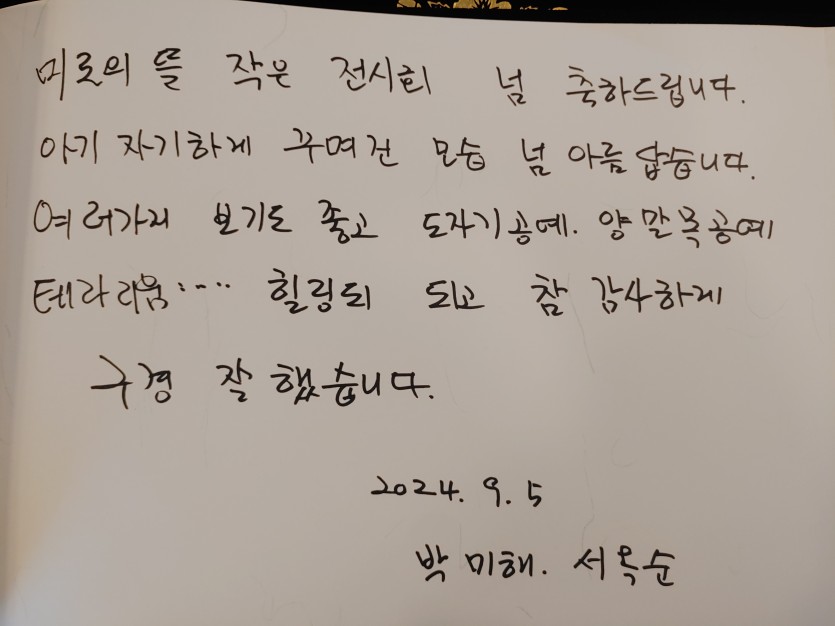 미로의 뜰 작은 전시회 넘 축하드립니다.
아기자기하게 꾸며진 모습 넘 아름답습니다.
여러가지 보기도 좋고 도자기공예. 양말목공예
테라리움..... 힐링되 되고 참 감사하게
구경 잘 했습니다.
2024. 9. 5
박미해. 서옥순